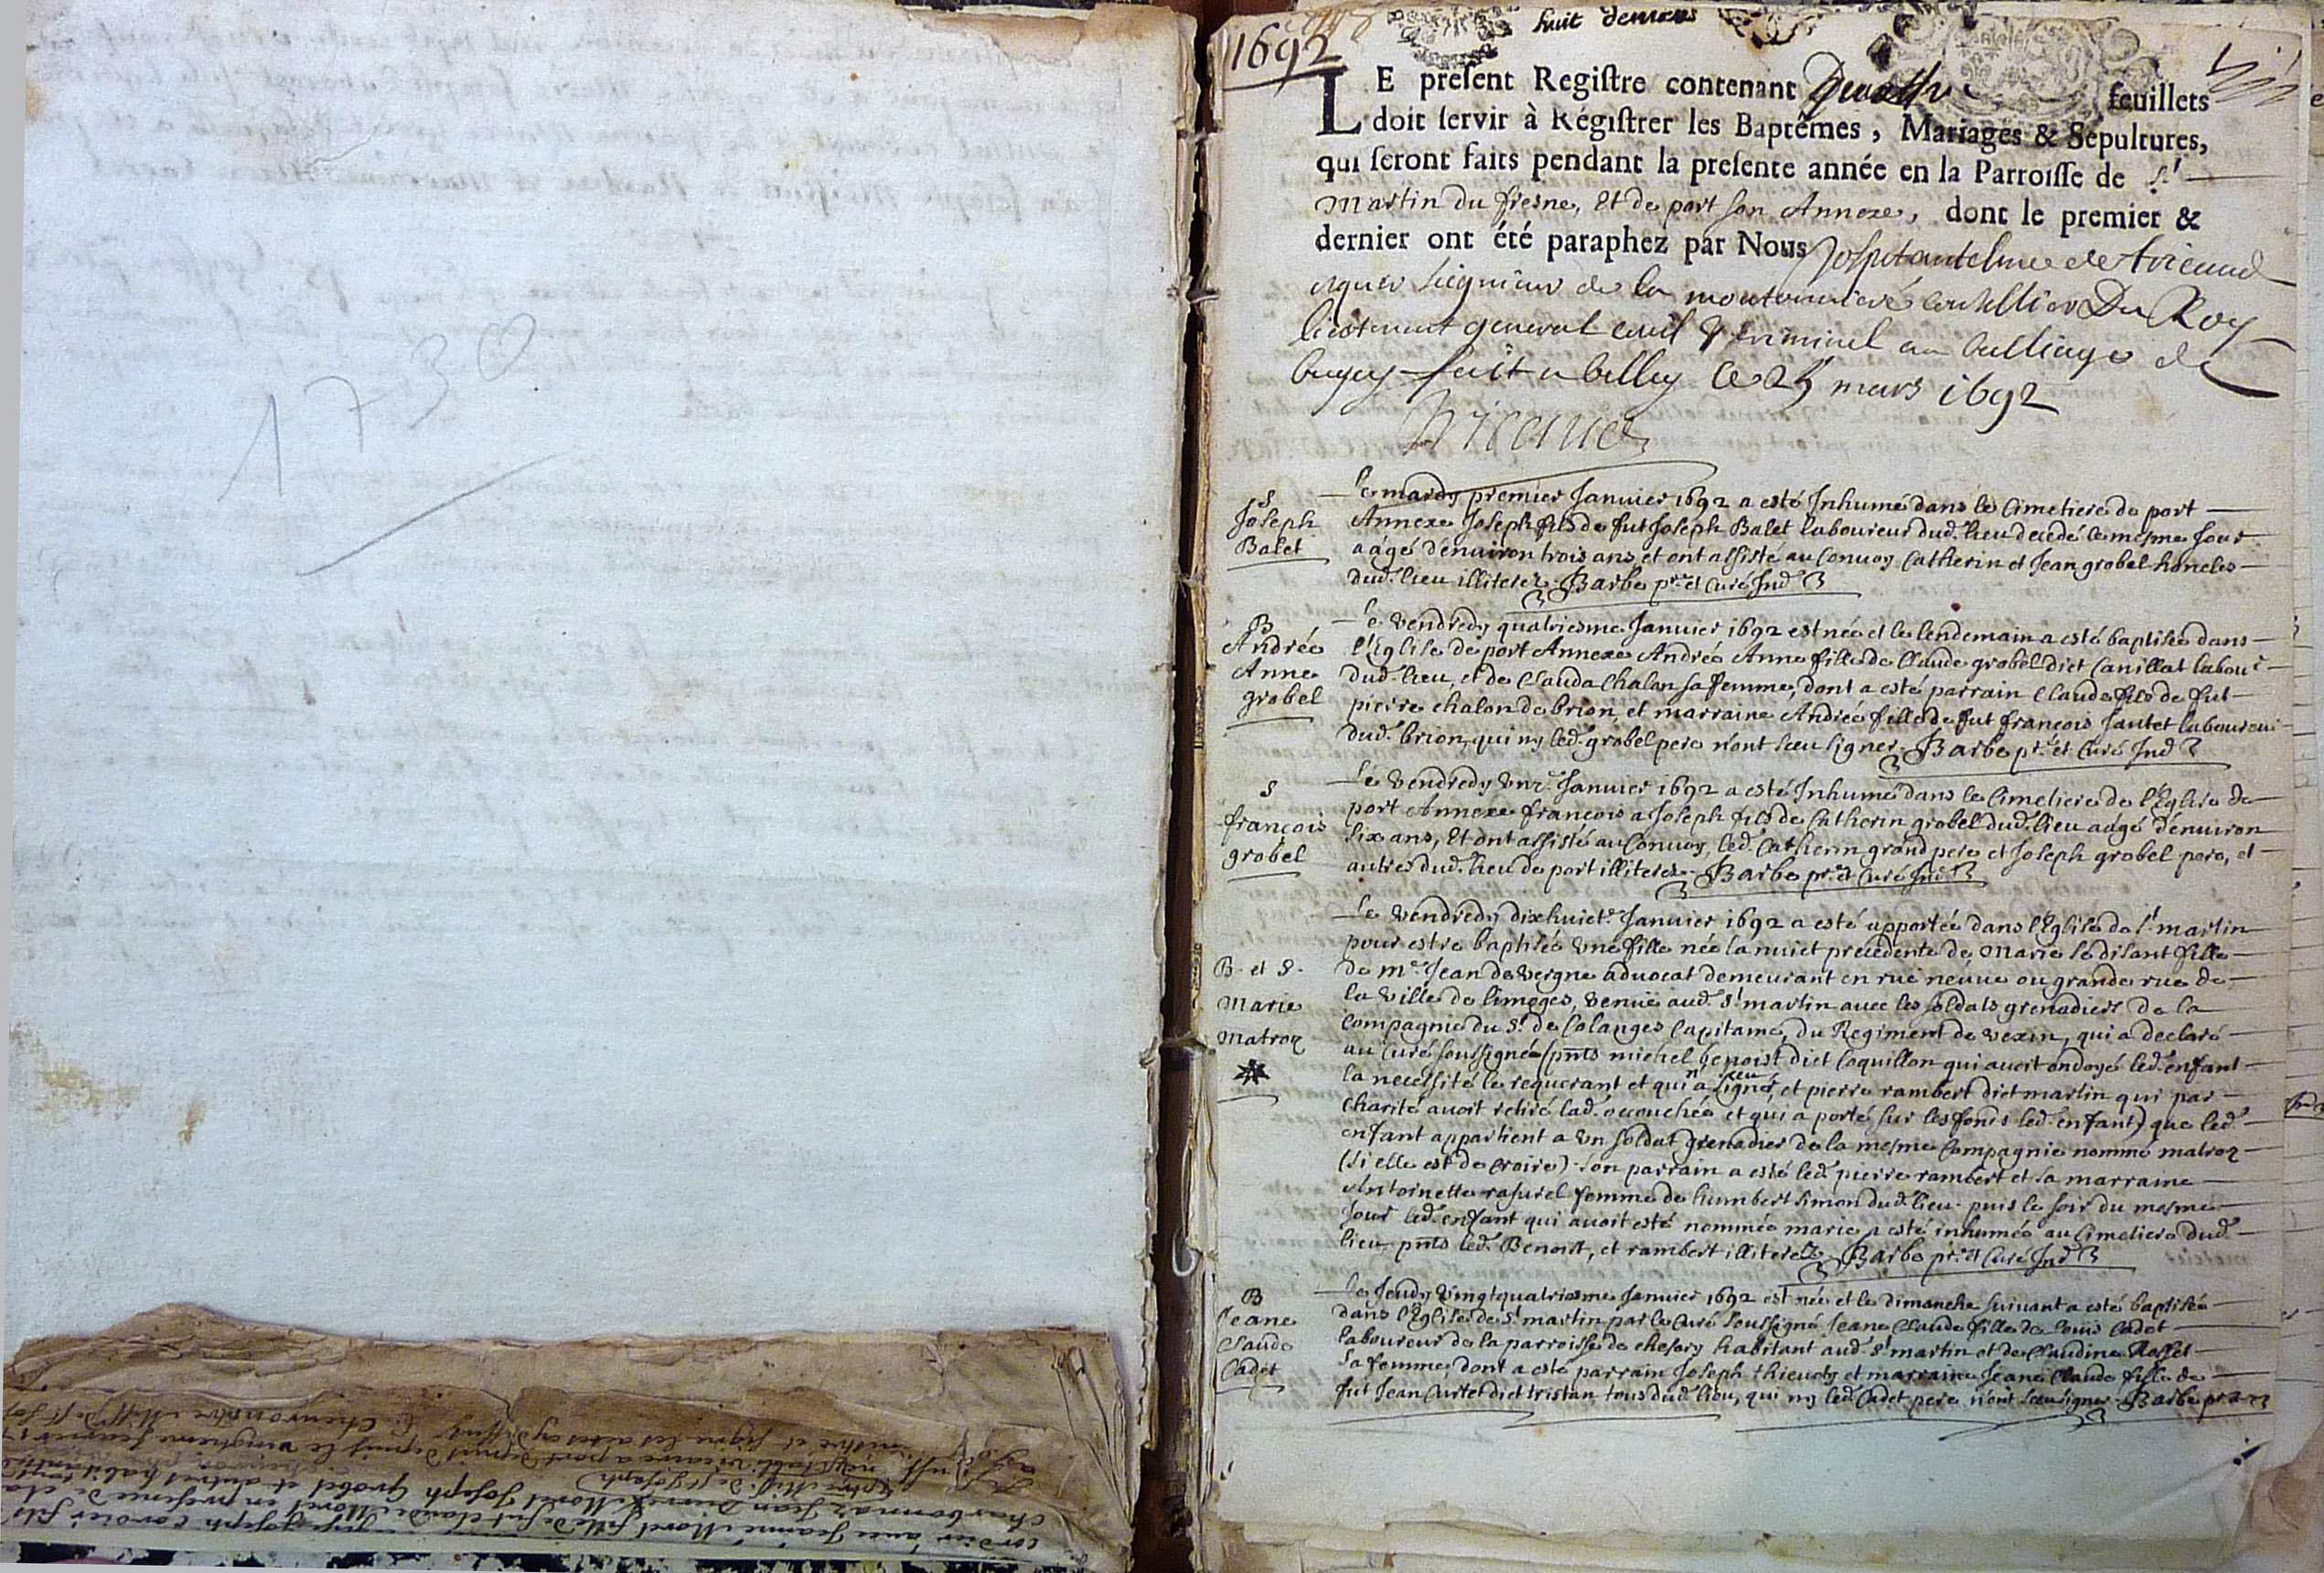 1730
1692
huit deniers
LE preſent Regiſtre contenant feuillets
doit ſervir à Régiſtrer les Baptêmes, Mariages & Sépultures,
qui ſeront faits pendant la preſente année en la Parroiſſe de St
Martin du fresne, Et de port son Annexe, dont le premier &
dernier ont été paraphez par Nous
seigneur de la conseillier Du Roy
lieutenant general civil & criminel au balliage de
bugey fait a belley ce 25 mars 1692
S
Joseph
Balet
Le mardy premier Januier 1692 a esté Inhumé dans le Cimetiere de port
Annexe Joseph fils de fut Joseph Balet laboureur dud. lieu decedé le mesme Jour
aagé d'enuiron trois ans, et ont assisté au Conuoy Catherin et Jean grobel honcles
dud. lieu illiterez. Barbe ptre et Curé Ind
B
Andrée
Anne
grobel
Le Vendredy quatriesme Januier 1692 est née et le lendemain a esté baptisée dans
l'Eglise de port Annexe Andrée Anne fille de Claude grobel dict Canillat labour
dud. lieu, et de Clauda Chalon sa femme, dont a esté parrain Claude fils de fut
pierre chalon de brion, et marraine Andrée fille de fut françois Jantet laboureur
dud. brion, qui ny led. grobel pere n'ont sceu signer. Barbe ptre et Curé Ind
S
françois
grobel
Le Vendredy unze Januier 1692 a esté Inhumé dans le Cimetiere de l'Eglise de
port Annexe françois a Joseph fils de Catherin grobel dud. lieu aagé d'enuiron
six ans, Et ont assisté au Conuoy, led. Catherin grand pere et Joseph grobel pere, et
autres dud. lieu de port illiterez. Barbe ptre et Curé Ind
B. et S.
Marie
Matroz
Le Vendredy dixhuict. Januier 1692 a esté apportée dans l'Eglise de St martin
pour estre baptisée une fille née la nuict precedente de Marie se disant fille
de me Jean de Vergne aduocat demeurant en rue neuue ou grande rue de
la Ville de limoges, venue aud. St martin auec les soldats grenadiers de la
Compagnie du Sr de Colanges Capitaine, du Regiment de vexin, qui a declaré
au Curé soussigné (pnts michel benoist dict Coquillon qui auoit ondoyé led. enfant
la necessité le requerant et qui n'a sceu signer, et pierre rambert dict martin qui par
Charité auoit retiré lad. acouchée et qui a porté sur les fonds led. enfant) que led.
enfant appartient a un soldat grenadier de la mesme Compagnie nommé matroz
(si elle est de croire). son parrain a esté led. pierre rambert et sa marraine
Antoinette rasurel femme de humbert Simon dud. lieu. puis le soir du mesme
Jour led. enfant qui auoit esté nommée marie a esté inhumée au Cimetiere dud.
lieu pnts led. Benoist, et rambert illiterez. Barbe ptre et Curé Ind
B
Jeane
Claude
Cadet
Le Jeudy Vingtquatriesme Januier 1692 est née et le dimanche suiuant a esté baptisée
dans l'Eglise de St martin par le Curé soussigné Jeane Claude fille de Louis Cadet
laboureur de la parroisse de chesery habitant aud. St martin et de Claudine Rosset
sa femme, dont a esté parrain Joseph thieudy et marraine Jeane Claude fille de
fut Jean Curtet dict tristan tous dud. lieu, qui ny led. Cadet pere n'ont sceu signer. Barbe ptre